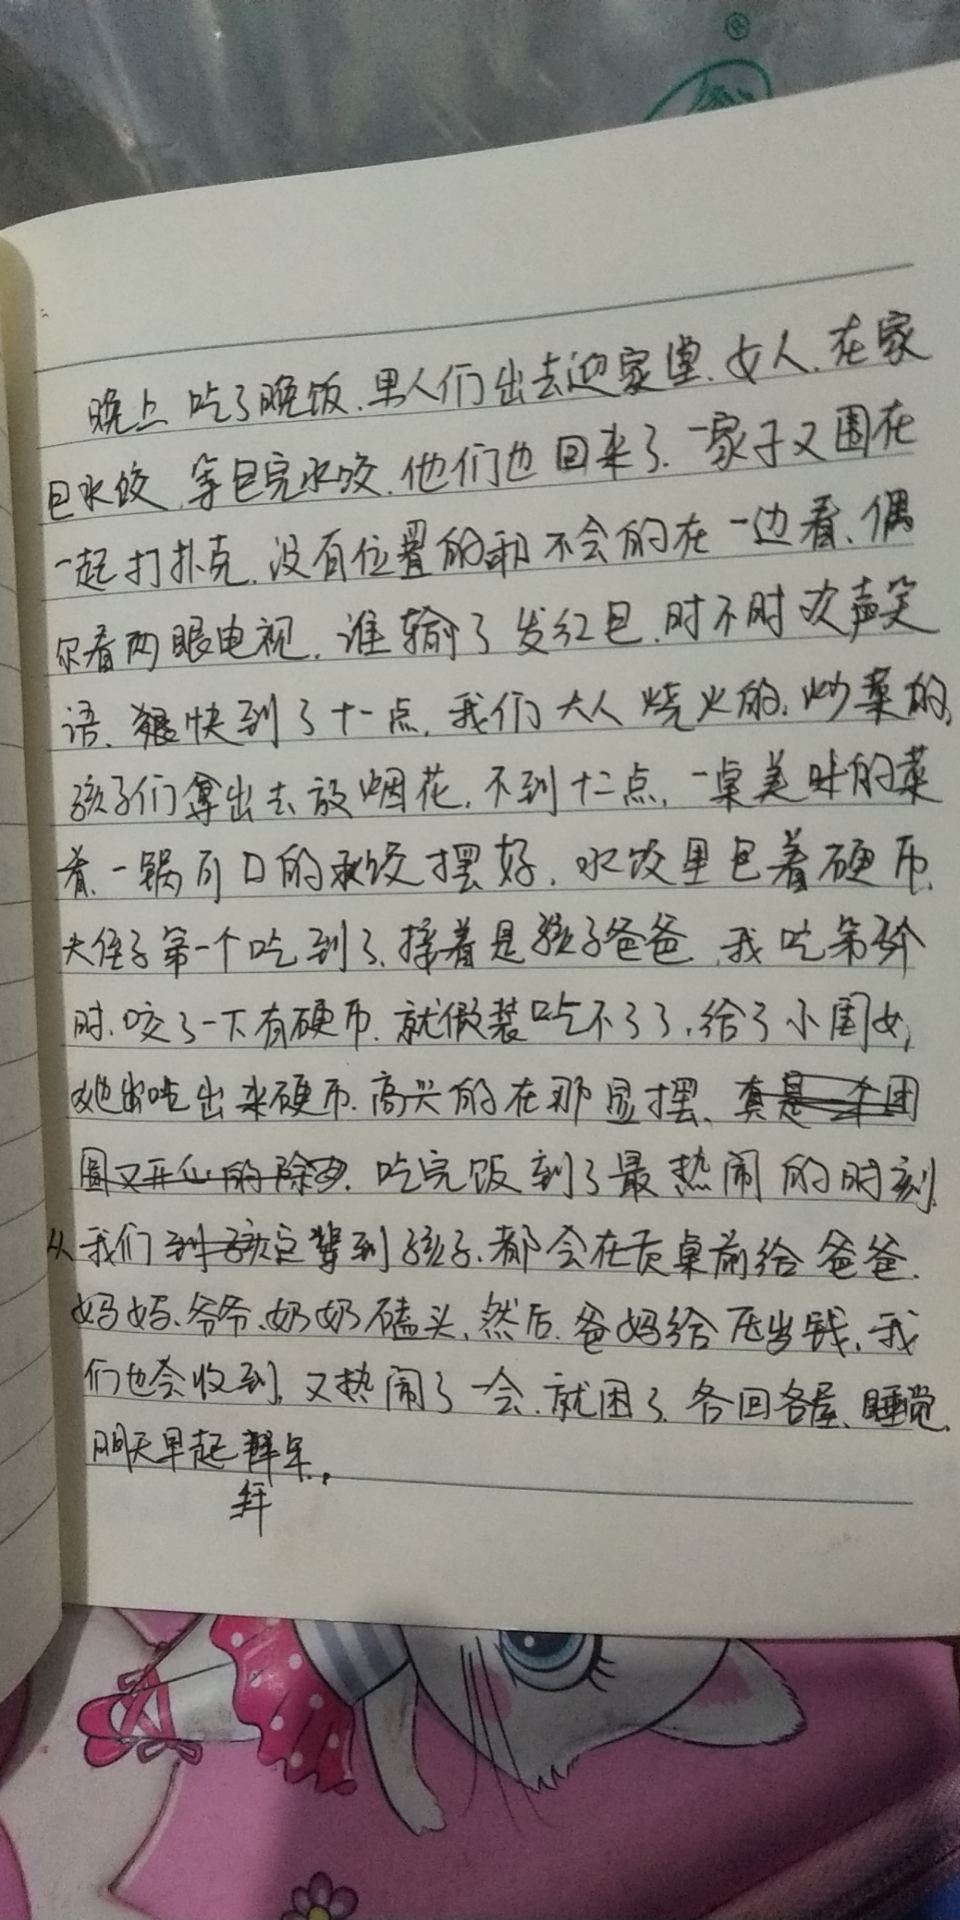 ®
晚上吃了晚饭.男人们出去迎家堂.女人.在家
包水饺.等包完水饺.他们也回来了.一家子又围在
一起打扑克.没有位置的和不会的在一边看、偶
尔看两眼电视.谁输了发红包.时不时欢声笑
语、很快到了十一点.我们大人烧火的.炒菜的,
孩子们拿出去放烟花.不到十二点.一桌美味的菜
肴、一锅可口的水饺摆好.水饺里包着硬币.
大侄子第一个吃到了.接着是孩子爸爸.我吃第
时.咬了一下有硬币.就假装吃不了了.给了小闺女,
她吃出来硬币.高兴的在那显摆、真是一个团
圆又开心的除夕.吃完饭到了最热闹的时刻.
从我们这辈到孩子.都会在贡桌前给爸爸.
妈妈、爷爷、奶奶磕头.然后.爸妈给压岁钱.我
们也会收到.又热闹了一会.就困了.各回各屋、睡觉.
明天早起拜年.
拜